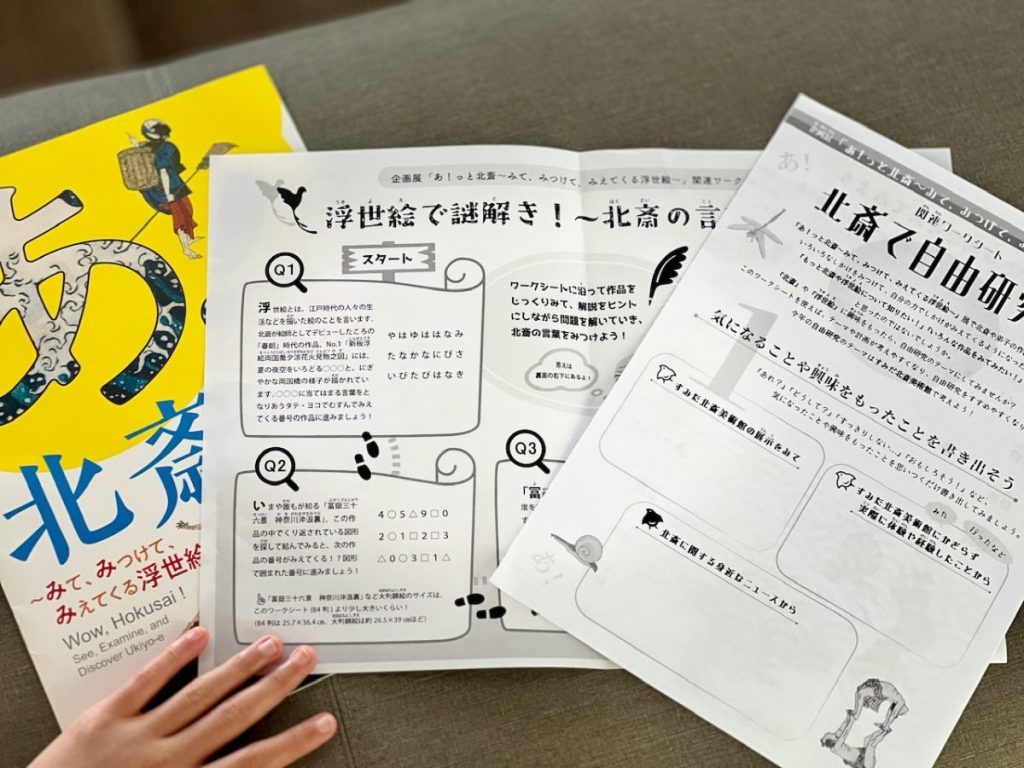 あ
北斎
~みて、みつけて、
みえてくる浮世絵
Wow, Hokusai !
See, Examine, and
Discover Ukiyo-e
企画展「あ!っと北斎~みて、みつけて、みえてくる浮世絵~」関連ワーク
浮世絵で謎解き!~北斎の言
スタート
Q1
浮世絵とは、江戸時代の人々の生
活などを描いた絵のことを言います。
北斎が絵師としてデビューしたころの
「春朗」時代の作品、No.1「新板浮
絵両国橋夕涼花火見物之図」には、
夏の夜空をいろどる○○○と、にぎ
やかな両国橋の様子が描かれていま
す。○○○に当てはまる言葉をと
なりあうタテ・ヨコでむすんでみえ
てくる番号の作品に進みましょう!
やはゆははなみ
たなかなにびさ
いびたびはなき
ワークシートに沿って作品を
じっくりみて、解説をヒント
にしながら問題を解いていき、
北斎の言葉をみつけよう!
答えは
裏面の右下にあるよ!
Q2
いまや誰もが知る「冨嶽三十
六景 神奈川沖浪裏」。この作
品の中でくり返されている図形
を探して結んでみると、次の作
品の番号がみえてくる!?図形
で囲まれた番号に進みましょう!
4○5△9□0
2○1□2□3
△0○3□1△
「冨嶽三十六景 神奈川沖浪裏」など大判錦絵のサイズは、
このワークシート(B4判)より少し大きいくらい!
(B4判は25.7×36.4cm、大判錦絵は約26.5×39cmほど)
Q3
「冨
度を
関連ワークシート
北斎で自由研究
「あ!っと北斎~みて、みつけて、みえてくる浮世絵~」展で北斎や弟子の作
「もっと北斎や浮世絵について知りたい!」「いろんな作品をみてみたい!」
「北斎」や「浮世絵」に興味をもったら、自由研究のテーマにしてみませんか?
このワークシートを使えば、テーマや計画が考えやすくなり、自由研究をすすめやすくなり
今年の自由研究のテーマはすみだ北斎美術館で考えよう!
1
気になることや興味をもったことを書き出そう
「あれ?」「どうして?」「すっきりしない…」「おもしろそう!」など、
気になったことや興味をもったことを思いつくだけ書き出してみましょう。
すみだ北斎美術館の展示をみて
すみだ北斎美術館にかぎらず
実際に体験や経験したことから
みた
行ったなど
北斎に関する身近なニュースから
あ!